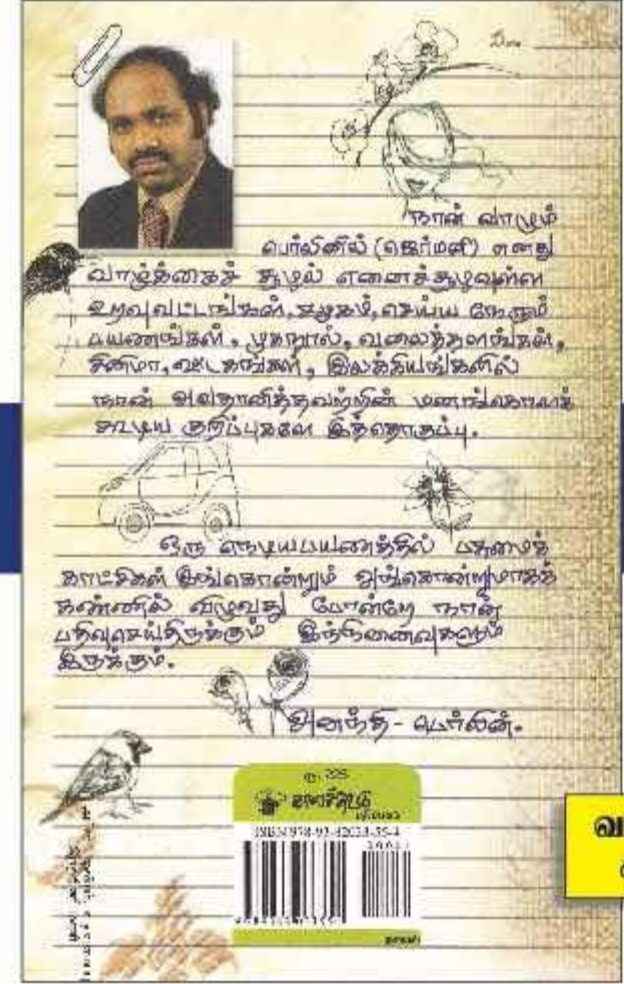 நான் வாழும்
பெர்லினில் (ஜெர்மனி) எனது
வாழ்க்கைச் சூழல் எனைச்சூழவுள்ள
உறவுவட்டங்கள், சமூகம், செய்ய நேரும்
பயணங்கள், முகநூல், வலைத்தளங்கள்,
சினிமா, ஊடகங்கள், இலக்கியங்களில்
நான் அவதானித்தவற்றின் மனங்கொளக்
கூடிய குறிப்புகளே இத்தொகுப்பு.
ஒரு நெடியபயணத்தில் பசுமைக்
காட்சிகள் இங்கொன்றும் அங்கொன்றுமாகக்
கண்ணில் விழுவது போன்றே நான்
பதிவுசெய்திருக்கும் இந்நினைவுகளும்
இருக்கும்.
- பெர்லின்.
ரூ. 225
காலச்சுவடு
ISBN 978-93-82033-55-4
நாவல்